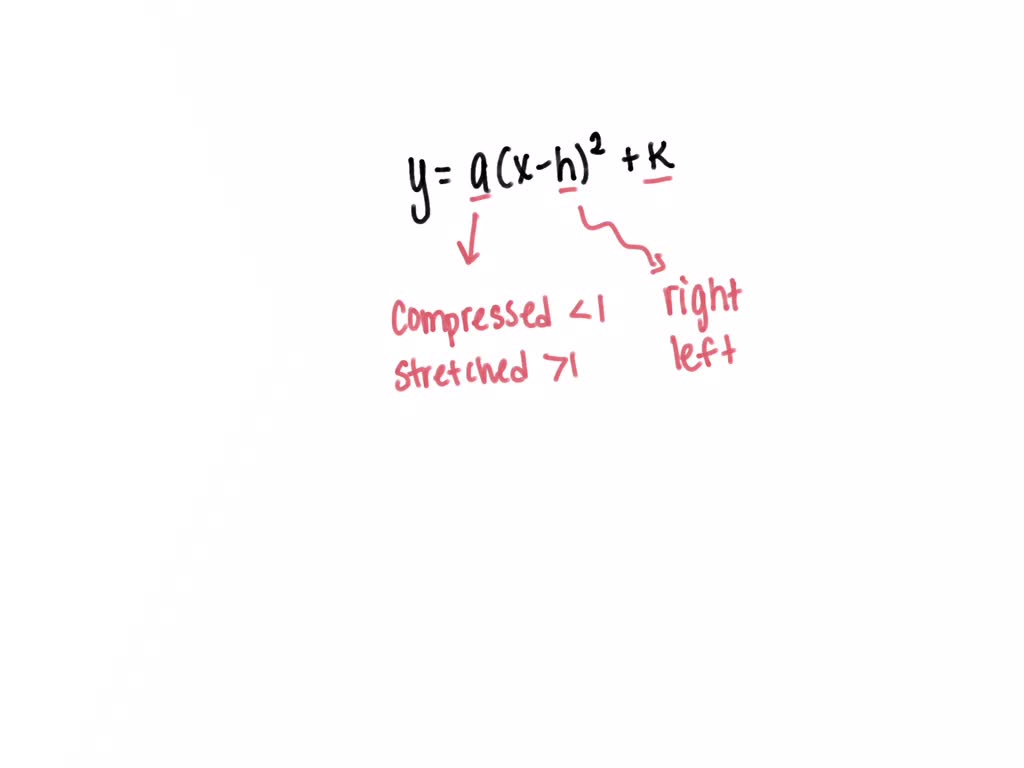 y = a(x-h)² + k
compressed <1
stretched >1
right
left